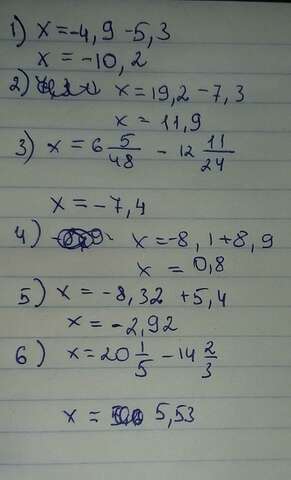 1) x = -4,9 - 5,3
x = -10,2
2) x = 19,2 - 7,3
x = 11,9
3) x = 6 5/48 - 12 11/24
x = -7,4
4) x = -8,1 + 8,9
x = 0,8
5) x = -8,32 + 5,4
x = -2,92
6) x = 20 1/5 - 14 2/3
x = 5,53